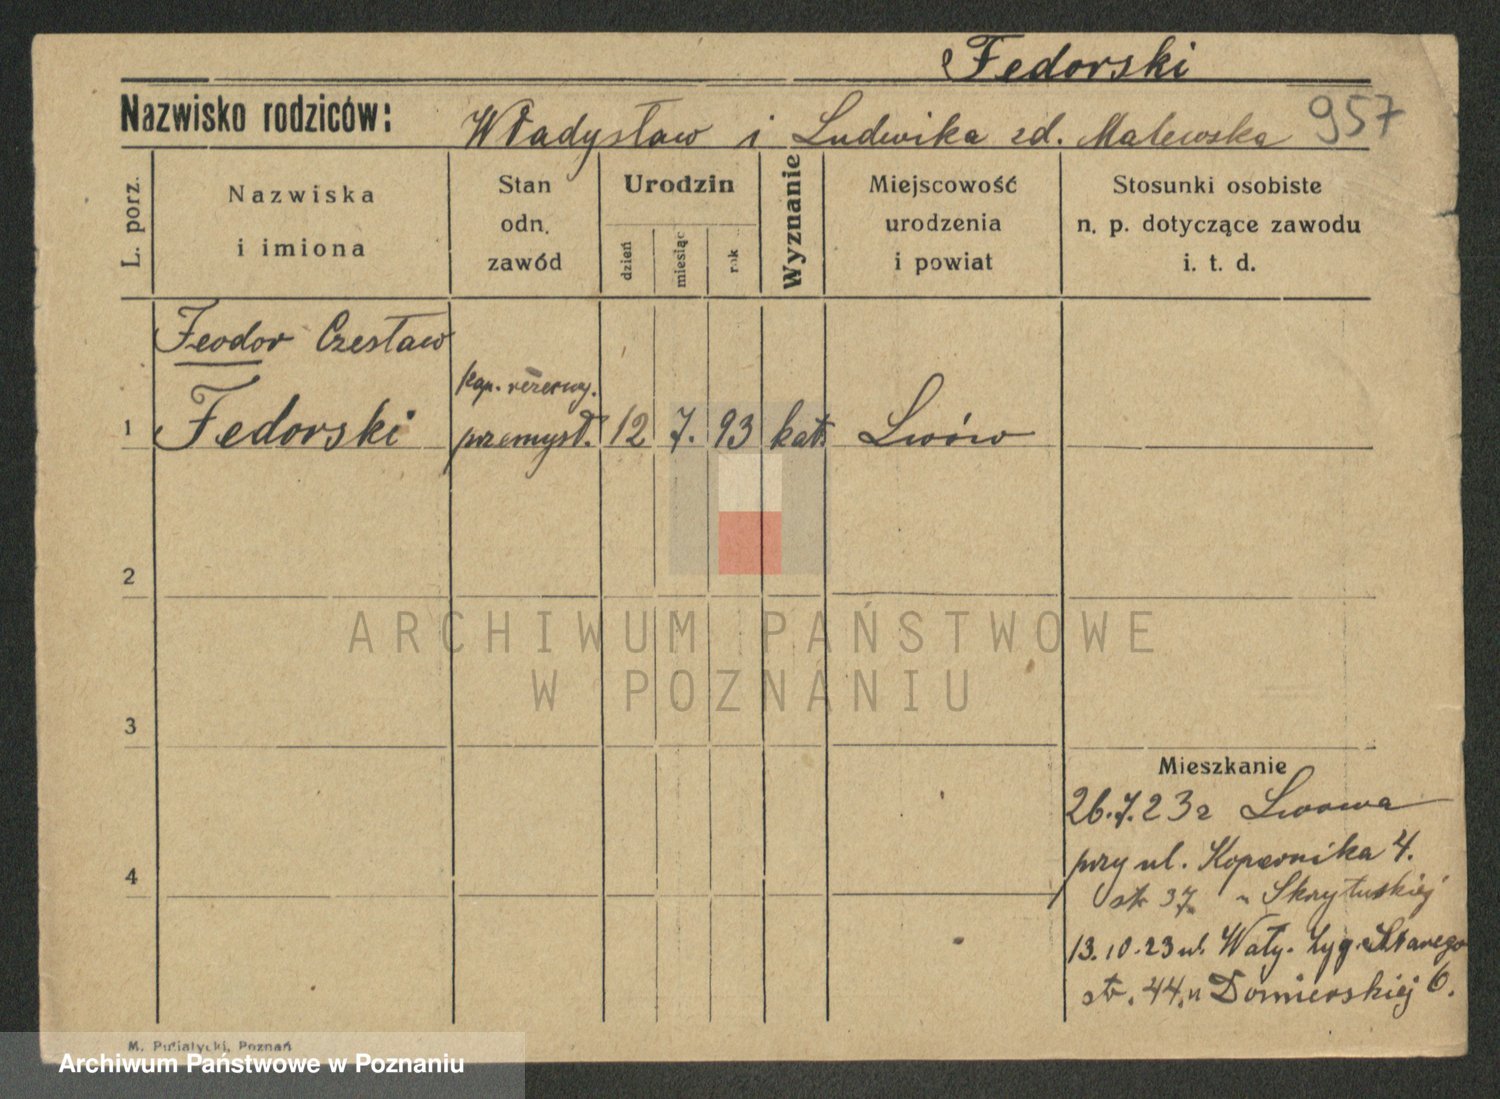 Fedorski
Nazwisko rodziców: Władysław i Ludwika zd. Malewska 957
L. porz.
Nazwiska
i imiona
Stan
odn.
zawód
Urodzin
dzień
miesiąc
rok
Wyznanie
Miejscowość
urodzenia
i powiat
Stosunki osobiste
n. p. dotyczące zawodu
i. t. d.
Feodor Czesław
kap. rezerwy.
1 Fedorski przemysł. 12 7. 93 kat. Lwów
2
3
4
Mieszkanie
26.7.23 z Lwowa
przy ul. Kopernika 4.
str 37. " 
13.10.23 ul. Wały. Zyg. Starego
str. 44. " 6.
M. Putiatycki, Poznań
ARCHIWUM PAŃSTWOWE
W POZNANIU
Archiwum Państwowe w Poznaniu